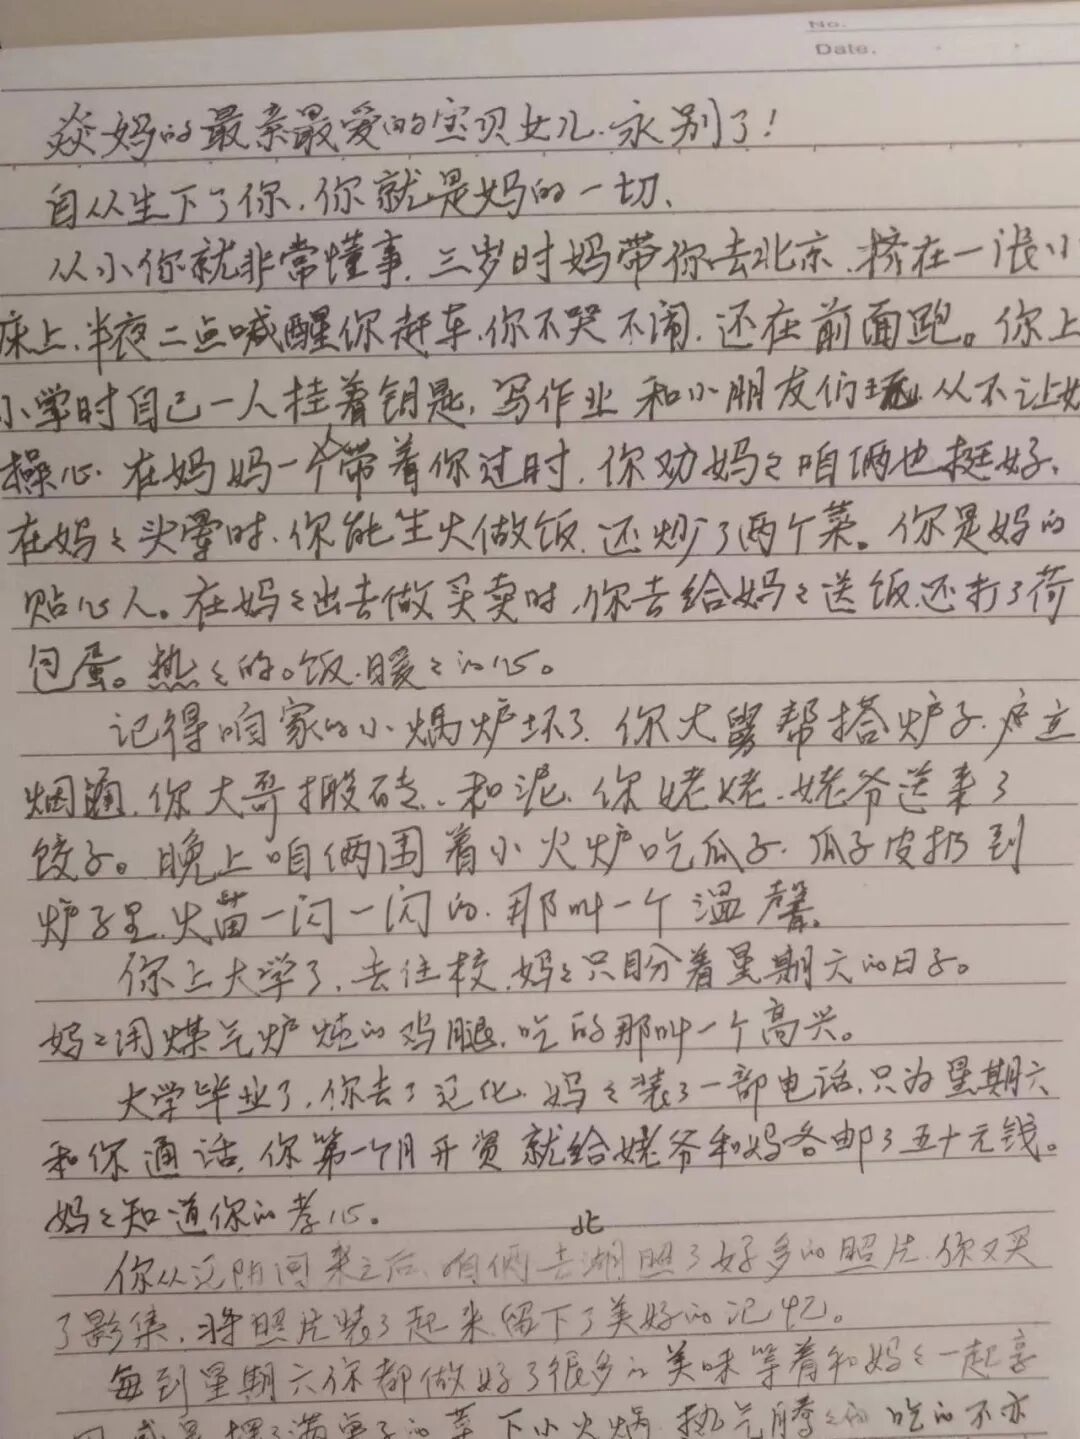 No.
Date.
焱妈的最亲最爱的宝贝女儿.永别了!
自从生下了你.你就是妈的一切、
从小你就非常懂事.三岁时妈带你去北京.挤在一张小
床上、半夜二点喊醒你赶车.你不哭不闹.还在前面跑。你上
小学时自己一人挂着钥匙,写作业 和小朋友们玩.从不让妈
操心.在妈妈一个人带着你过时,你劝妈々咱俩也挺好、
在妈々头晕时.你能生火做饭.还炒了两个菜。你是妈的
贴心人。在妈々出去做买卖时,你去给妈々送饭.还打了荷
包蛋。热々的。饭.暖々的心。
记得咱家的小锅炉坏了.你大舅帮搭炉子.
烟囱.你大哥搬砖、和泥.你姥姥.姥爷送来了
饺子。晚上咱俩围着小火炉吃瓜子.瓜子皮扔到
炉子里.火苗一闪一闪的.那叫一个温馨。
你上大学了.去住校.妈々只盼着星期六的日子。
妈々用煤气炉炖的鸡腿.吃的那叫一个高兴。
大学毕业了.你去了辽化.妈々装了一部电话.只为星期六
和你通话.你第一个月开资就给姥爷和妈各邮了五十元钱。
妈々知道你的孝心。
你从辽阳回来之后.咱俩去北湖照了好多的照片.你又买
了影集.将照片装了起来.留下了美好的记忆。
每到星期六你都做好了很多的美味等着和妈々一起享
满桌子的菜.下小火锅.热气腾々的 吃的不亦